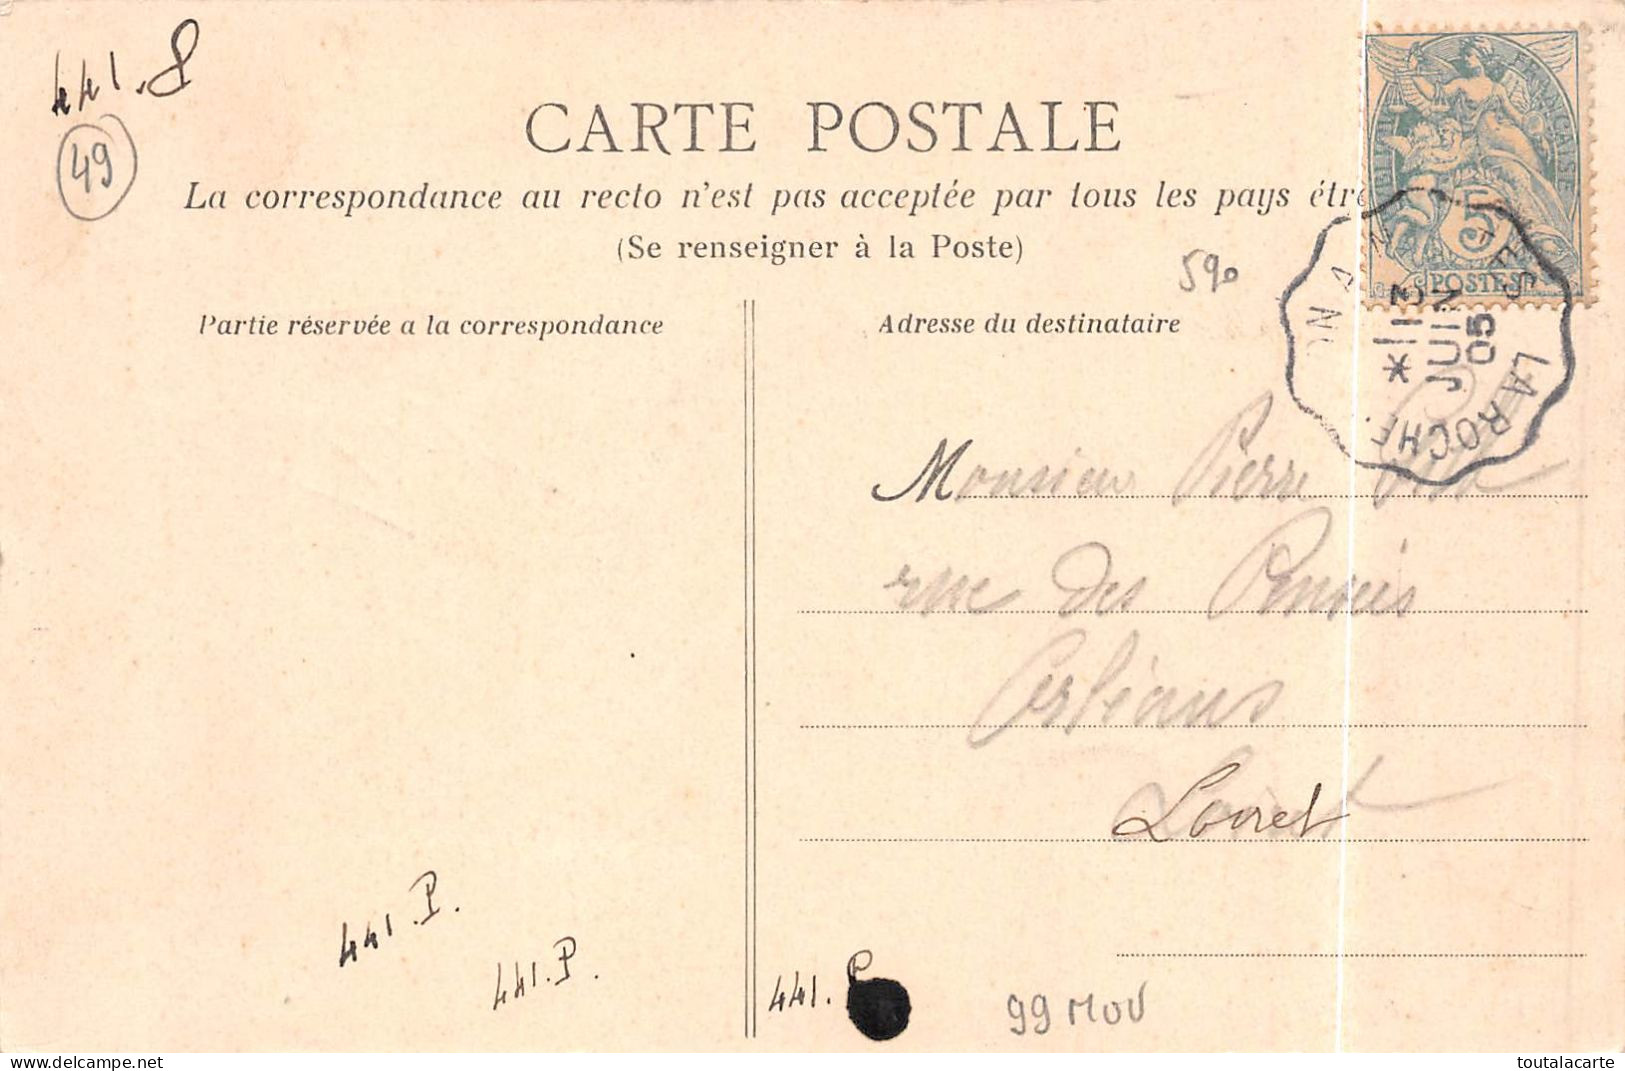 441.P
49
CARTE POSTALE
La correspondance au recto n'est pas acceptée par tous les pays étr
(Se renseigner à la Poste)
590
Partie réservée a la correspondance
Adresse du destinataire
FRANÇAISE
5
POSTES
LA ROCHE
*113
JUIN
05
Monsieur Pierre
rue des
Orléans
Loiret
441.P.
441.P.
441.P
99 MOV
Delcampe.net
toutalacarte